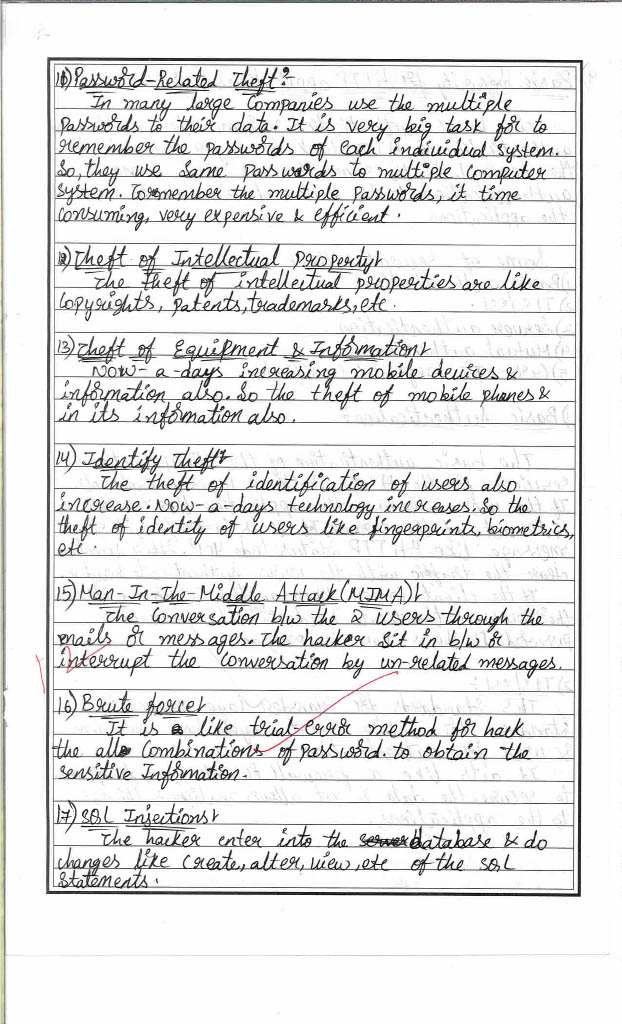 11) Password-Related Theft:-
In many large Companies use the multiple
passwords to their data. It is very big task for to
remember the passwords of each individual system.
So, they use Same passwords to multiple Computer
System. To remember the multiple passwords, it time
Consuming, very expensive & efficient.
12) Theft of Intellectual Property:-
The theft of intellectual properties are like
Copyrights, patents, trademarks, etc.
13) Theft of Equipment & Information:-
Now-a-days increasing mobile devices &
information also. So the theft of mobile phanes &
in its information also.
14) Identify Theft:-
The theft of identification of users also
increase. Now-a-days technology increases. So the
theft of identity of users like fingerprints, biometrics,
etc.
15) Man-In-The-Middle Attack (MIMA):-
The Conversation b/w the 2 users through the
mails or messages. The hacker Sit in b/w or
interrupt the Conversation by un-related messages.
16) Brute force:-
It is a like trial-error method for hack
the all Combinations of password. to obtain the
sensitive Information.
17) SQL Injections:-
The hacker enter into the server database & do
changes like Create, alter, view, etc of the SQL
Statements.